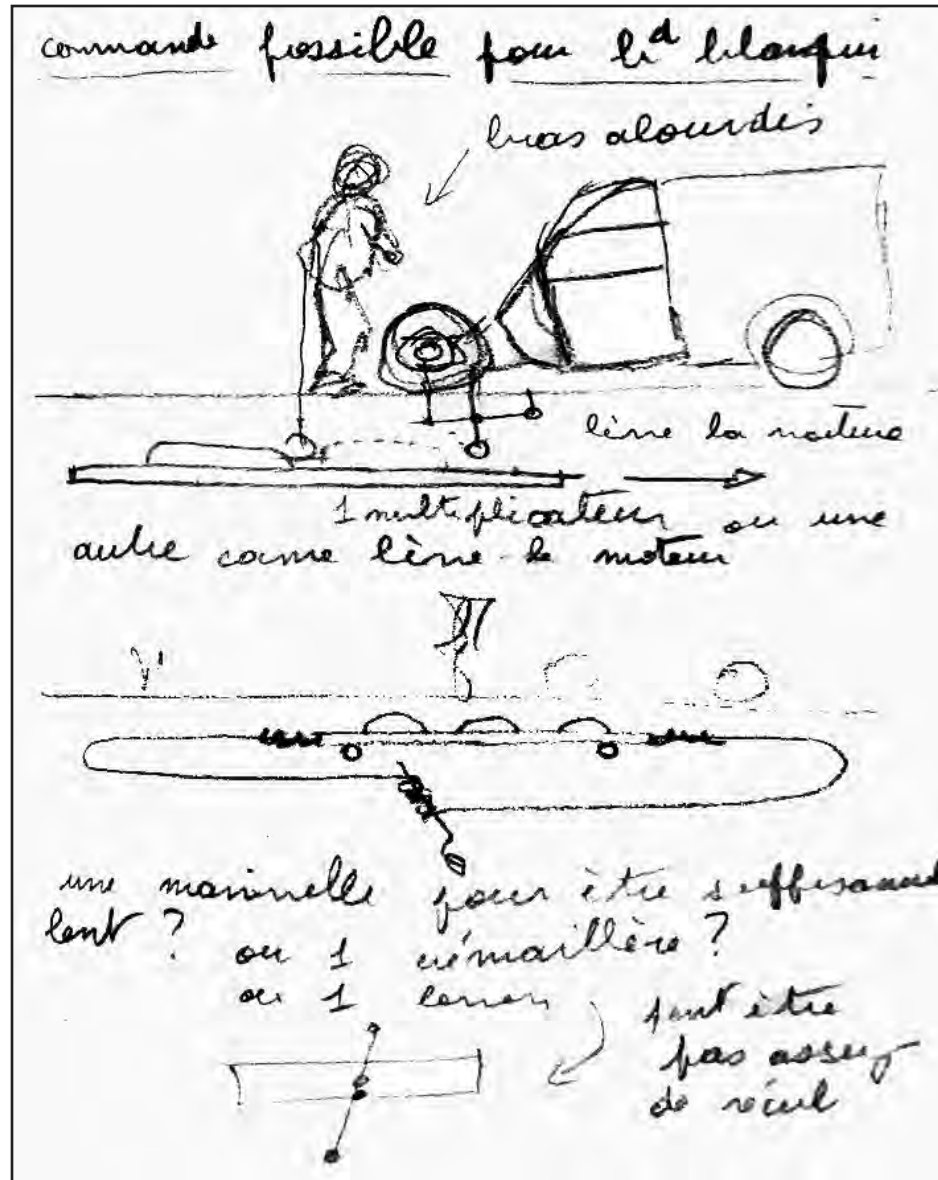 commande possible pour bd blanqui
bras alourdis
lève la voiture
1 multiplicateur ou une
autre came lève le moteur
une manivelle pour être suffisamment
lent ?
ou 1 crémaillère ?
ou 1 levier
peut être
pas assez
de recul